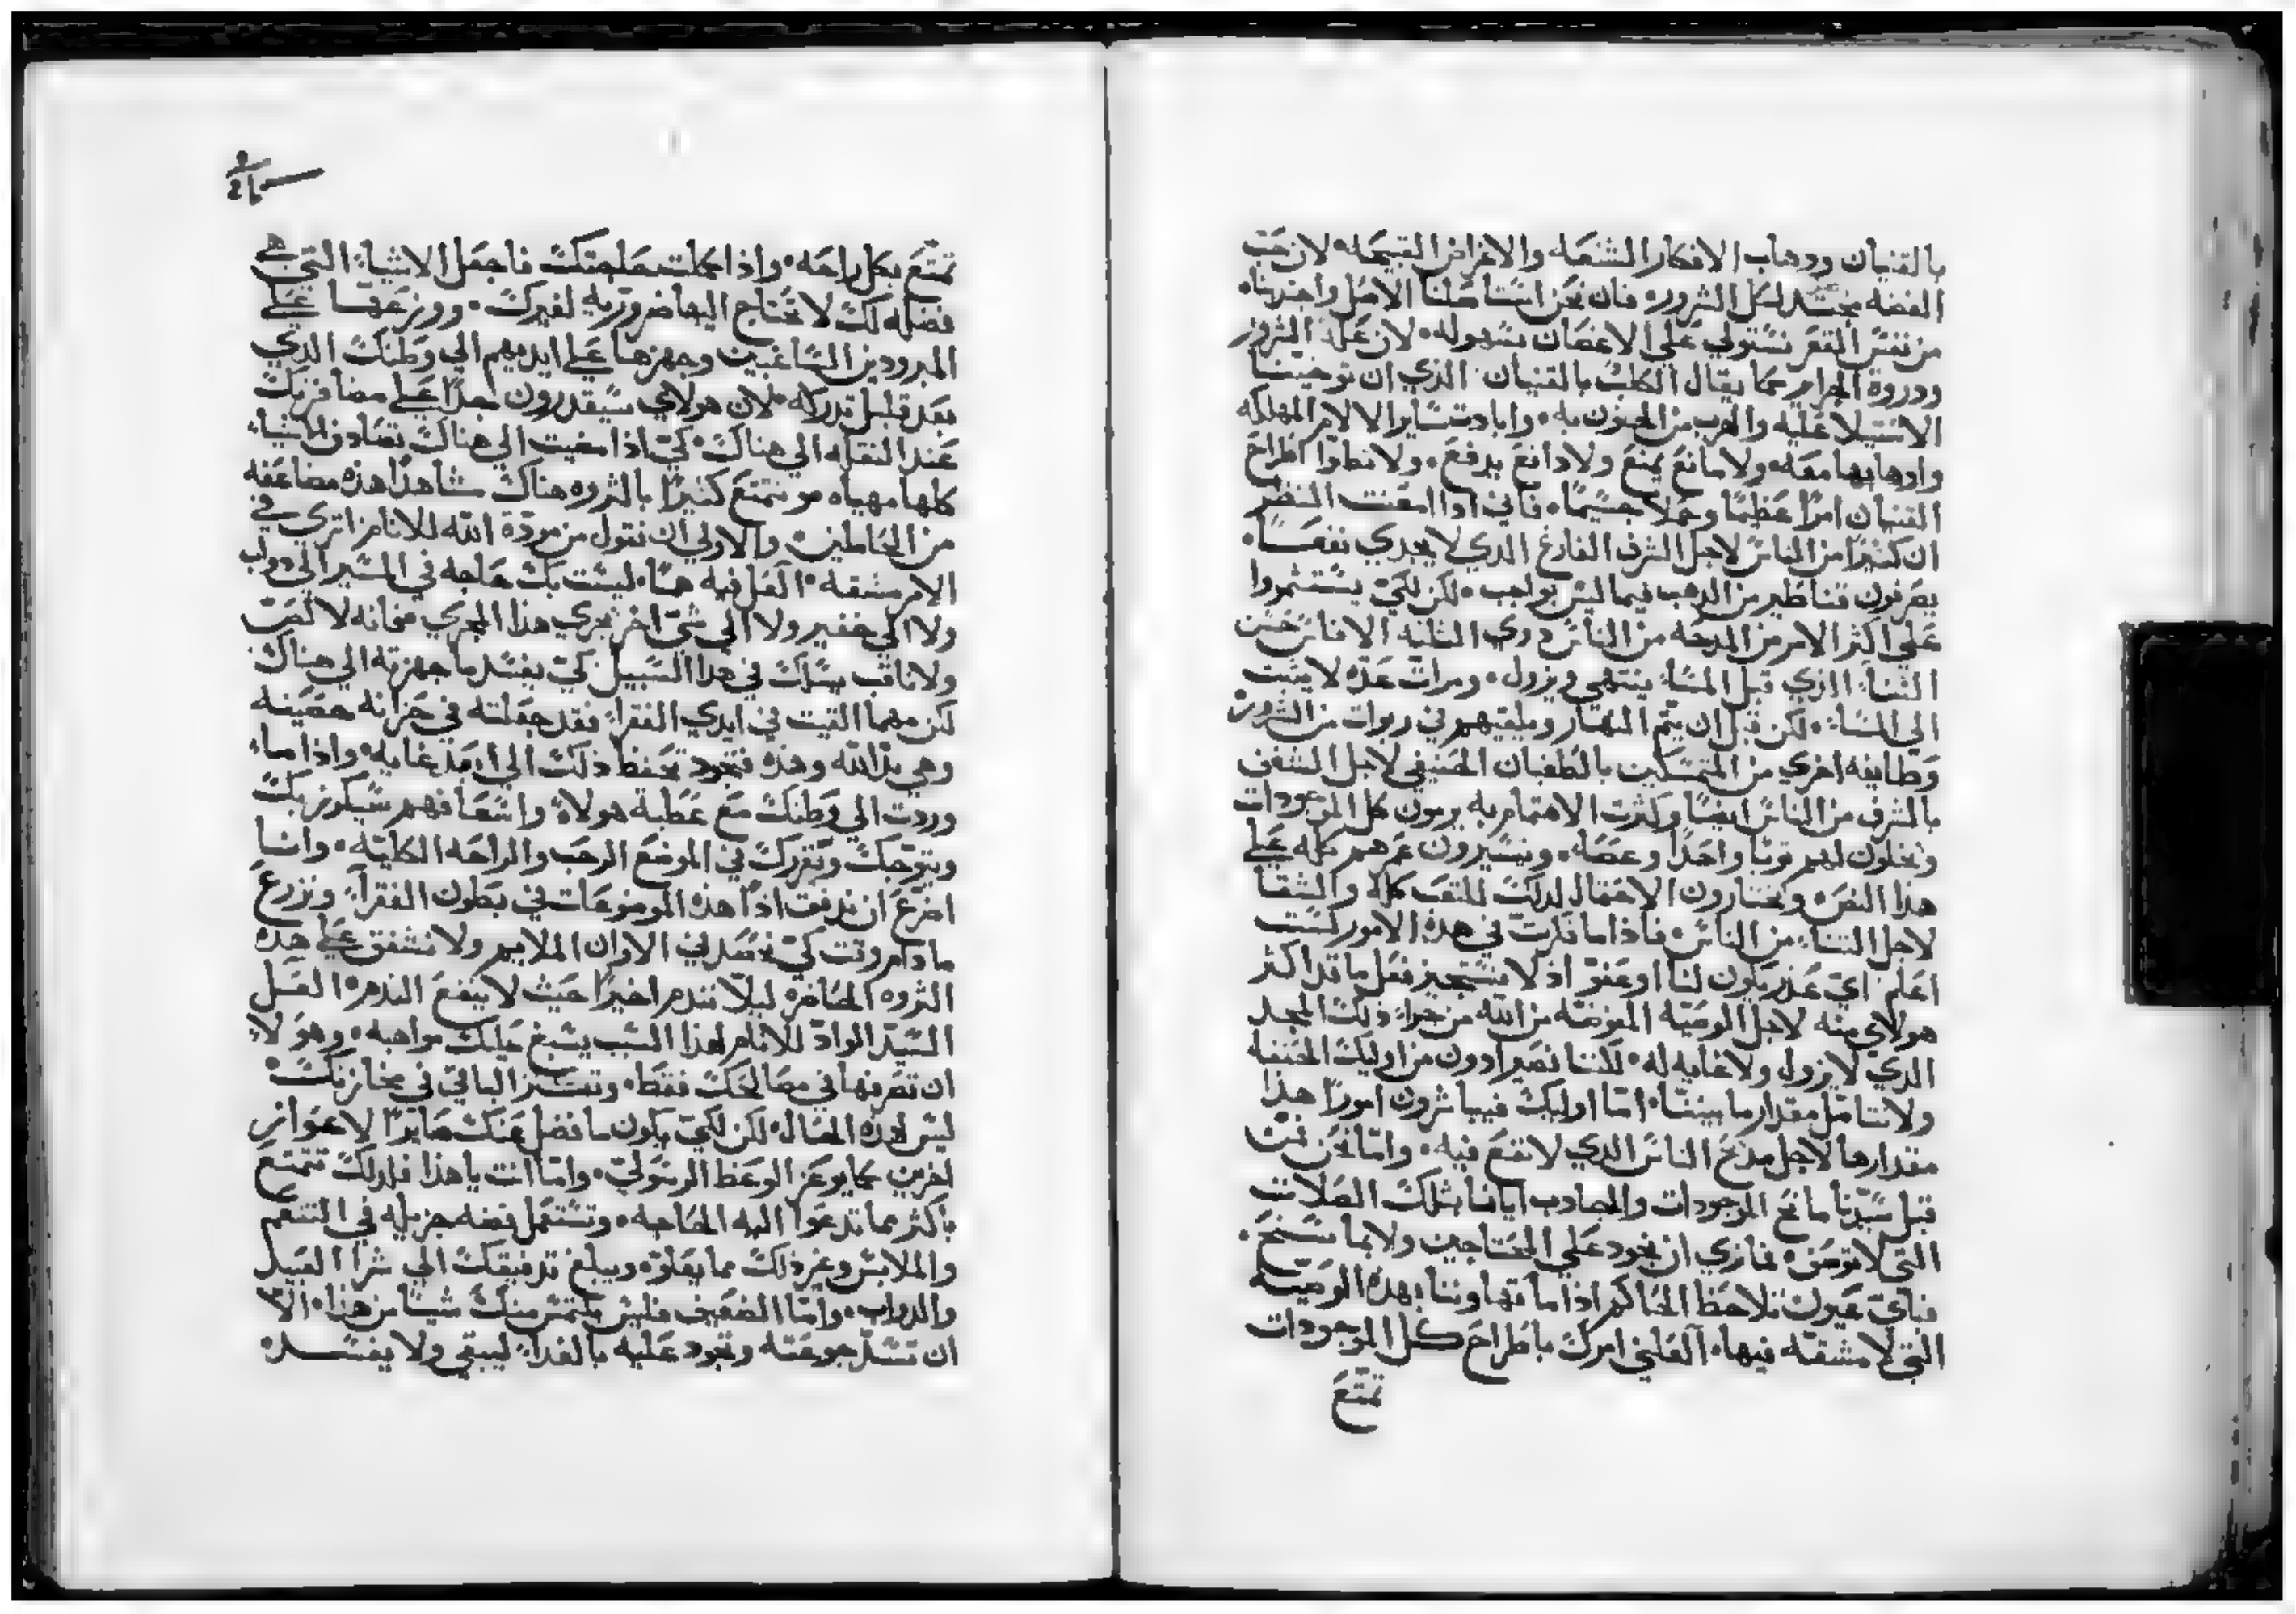 بالقنيان ودهاب الافكار الشنعه والاغراض القبيحه لان حب
الفضه مجتد لكل الشرور فان نحن استاصلنا الاصل واجدبنا
من نفس القعر نستولي علي الاغصان بسهوله لان علة الشرور
ودروة الجرايم كما يقال الكلب بالقنيان الذي ان توخينا
الاستيلا عليه والهرب من الجنون به وابادت ساير الالام المهلكه
وادهابها معه ولا مانع يمنع ولا دافع يدفع ولا تظنوا اطراح
القنيان امرا عظيما وحملا جسيما فاني اذا امعنت النظر
ان كثيرا من الناس لاجل الشرف الفارغ الدي لا يجدي نفعا
يصرفون قناطير من الدهب فيما ليس بواجب لكن لكي يستثمروا
علي اكثر الامر من المدحه من الناس دوي الثلثه الافلس حسن
الثنا الذي قبل المسا ينتهي ويزول ومرات عده لا يثبت
الي المسا لكن قبل ان يتم النهار ويلقيهم في ربوات من الشرور
وطايفه اخري من المتمسكين بالطغيان الحنيفي لاجل الشغف
بالشرف من الناس ايضا وكثرت الاهتمام به يرمون كل الموجودات
ويخلون لهم ثوبا واحدا وعصا ويسيرون عمرهم كله علي
هذا النص ويختارون الاحتمال لدلك للتعب كله والشقا
لاجل الثنا من الناس فاذا ما فكرت في هده الامور لست
اعلم اي عذر يكون لنا او عفو اذ لا نستجيز فعل ما قد اكثر
هولاي منه لاجل الوصيه المفوضه من الله من جرا ذلك المجد
الدي لا يزول ولا غايه له لكننا نصير ادون من اوليك الحنفا
ولا نتامل مقدار ما بيننا اما اوليك فيباشرون امورا هذا
مقدارها لاجل مدح الناس الدي لا نفع فيه واما نحن فمن
قبل سيدنا مانح الموجودات والجادب ايانا بتلك الصلات
التي لا توصف فما نري ان نجود علي المحتاجين ولا بما نسنح
فباي عيون نلاحظ الحاكم اذا ما تهاوننا بهذه الوصيه
التي لا مشقه فيها العلني امرك باطراح كل الموجودات
تمتع
تمتع بكل راحه واذا كملت حاجتك فاجعل الاشيا التي هي
فضله لك لا تحتاج اليها ضروريه لغيرك ووزعها علي
المبرودين الساغبين وجهزها علي ايديهم الي وطنك الدي
بعد قليل تدركه لان هولاي سيقدرون جدا علي مضافرتك
عند النقله الي هناك كي اذا مضيت الي هناك تصادف الاشياء
كلها مهياه وتتمتع كثيرا بالثروه هناك مشاهدا هذه مضاعفه
من الحاملين والاولي ان نقول من مودة الله للانام اتري في
الامر مشقه العل فيه عنا ليست بك حاجه في المسير الي دواب
ولا الي خفير ولا الي شي اخر يجري هذا المجري فانه لا لص
ولا ناقب يسلك في هدا السبيل كي يفسد ما جهزته الي هناك
لكن مهما القيت في ايدي الفقرا فقد جعلته في خزانه حصينه
وهي يد الله وهذه فتجود تحفظ ذلك الي ابعد غايه واذا ما
وردت الي وطنك مع عطية هولاء واسعافهم سيكرزبك
ويتوجك وتقررك في الموضع الرحب والراحه الكليه وانما
اضرع ان ندفق اذا هذه الموضوعات في بطون الفقرآ ونزرع
ما دام وقت كي نحصد في الاوان الملايم ولا نشفق علي هده
الثروه الحاضره ليلا نندم اخيرا حيث لا ينفع الندم العل
السيد الواد للانام لهذا السبب يسبغ عليك مواهبه وهو لا
ان تصرفها في مصالحك فقط وتكنز الباقي في مخازنك
ليس لهده الحال لكن لكي يكون ما فضل عنك جابرا لاعواز
اخرين كما يوعز الوعظ الرسولي واما انت يا هذا فلدلك تتمتع
باكثر مما تدعوا اليه الحاجه وتستعمل فضه جزيله في التنعم
والملابس وغير ذلك مما يتلوه ويبلغ تدفيقك الي شرا العبيد
والدواب واما الضعيف فليس يلتمس منك شيا من هذا الا
ان تسد جوعته وتجود عليه بالغدا ليبقي ولا يفسده